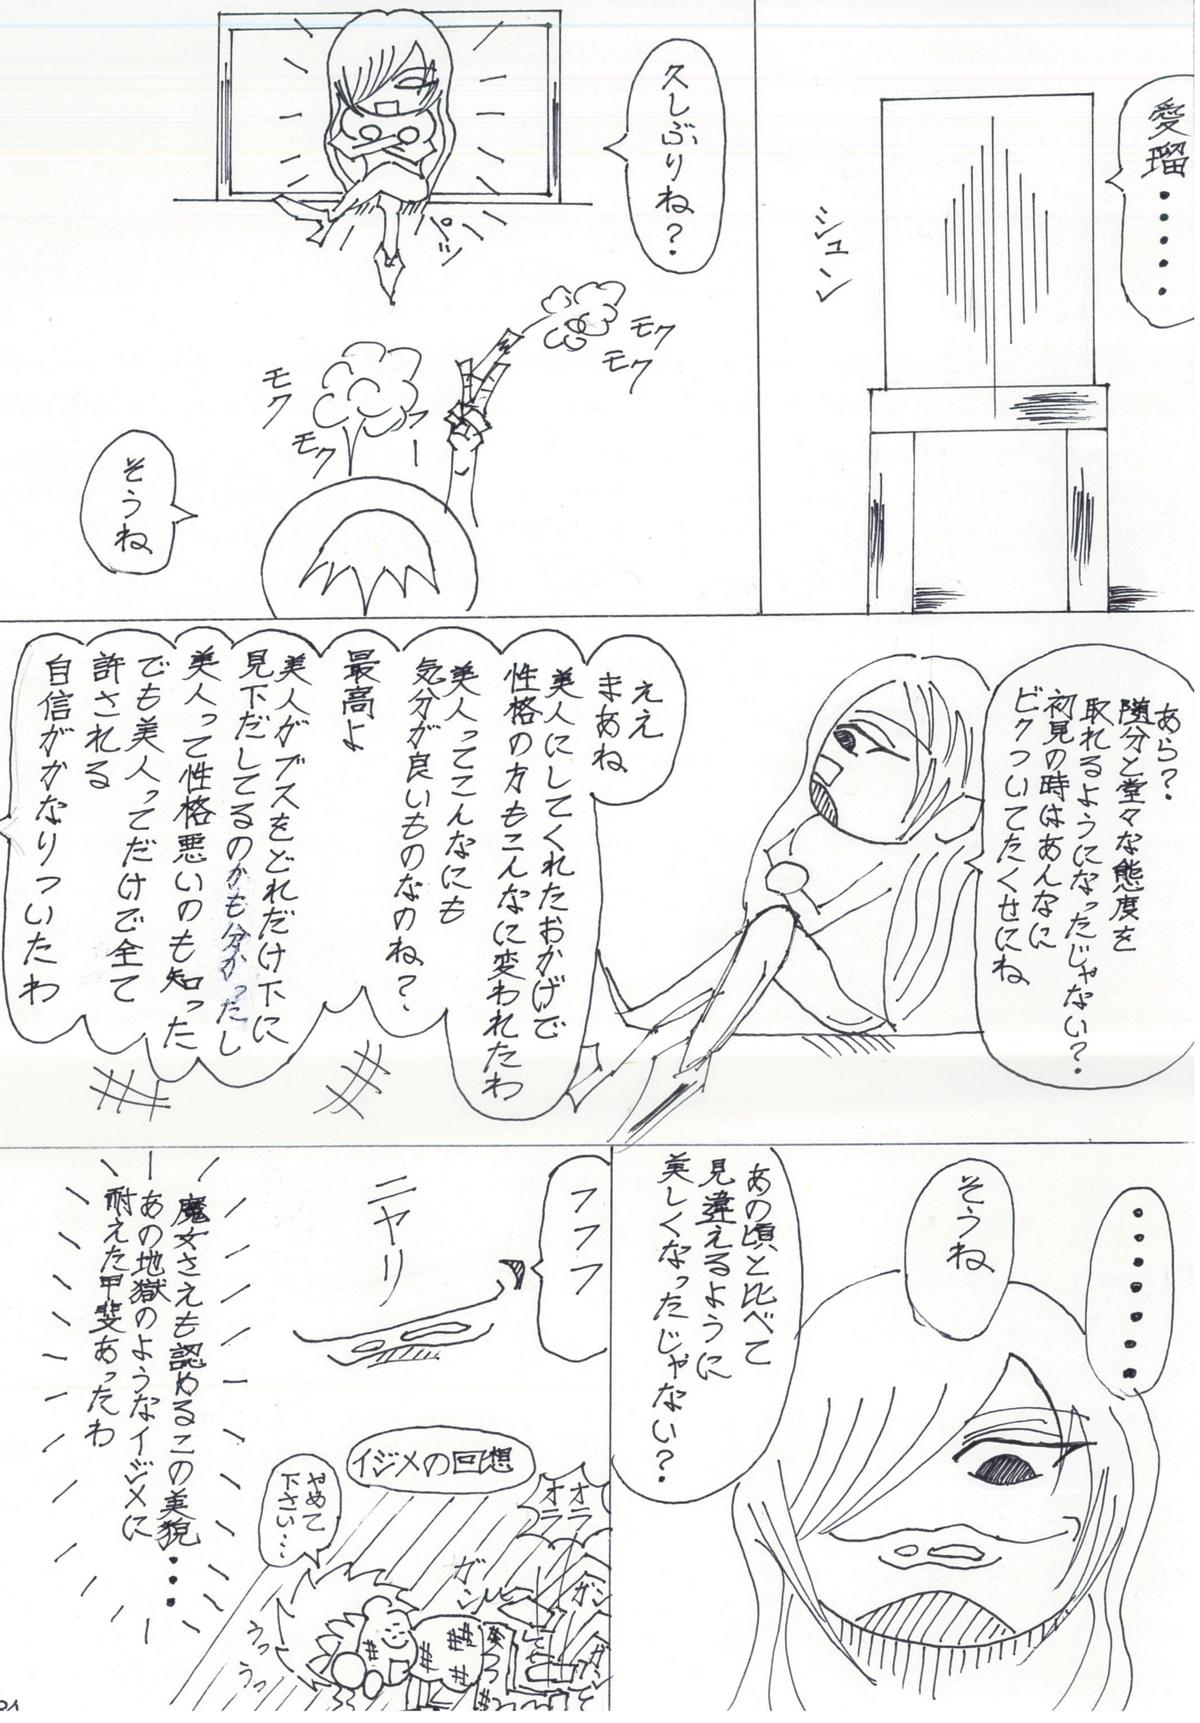 愛瑠・・・・・
シュン
久しぶりね?
パッ
モク
モク
モク
モク
フー
そうね
あら?
随分と堂々な態度を
取れるようになったじゃない?
初見の時はあんなに
ビクついてたくせにね
ええ
まあね
美人にしてくれたおかげで
性格の方もこんなに変われたわ
美人ってこんなにも
気分が良いものなのね?
最高よ
美人がブスをどれだけ下に
見下だしてるのかも分かったし
美人って性格悪いのも知った
でも美人ってだけで全て
許される
自信がかなりついたわ
・・・・・・
そうね
あの頃と比べて
見違えるように
美しくなったじゃない?
フフフ
ニヤリ
イジメの回想
オラ
オラ
ガン
ガン
ガン
やめて
下さい・・・
うっうっ
魔女さえも認めるこの美貌・・・
あの地獄のようなイジメに
耐えた甲斐あったわ